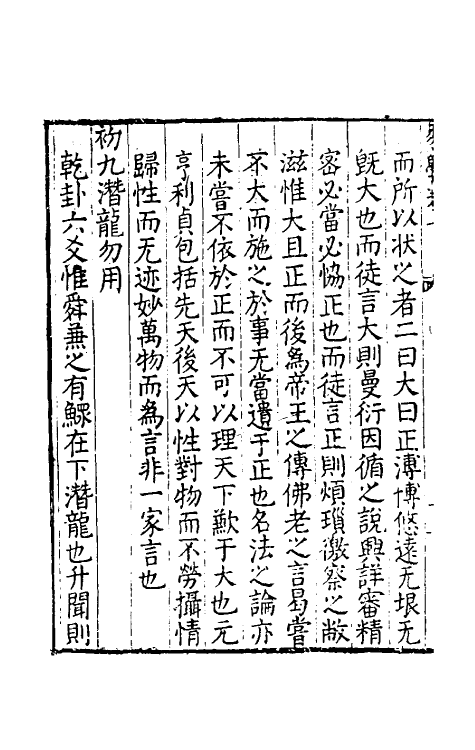 而所以状之者二曰大曰正溥博悠遠无垠无
旣大也而徒言大則曼衍因循之說興詳審精
密必當必恊正也而徒言正則煩瑣徼察之敝
滋惟大且正而後為帝王之傳佛老之言曷嘗
不大而施之於事无當遺于正也名法之論亦
未嘗不依於正而不可以理天下歉于大也元
亨利貞包括先天後天以性對物而不勞攝情
歸性而无迹妙萬物而為言非一家言也
初九潛龍勿用
乾卦六爻惟舜兼之有鰥在下潛龍也升聞則